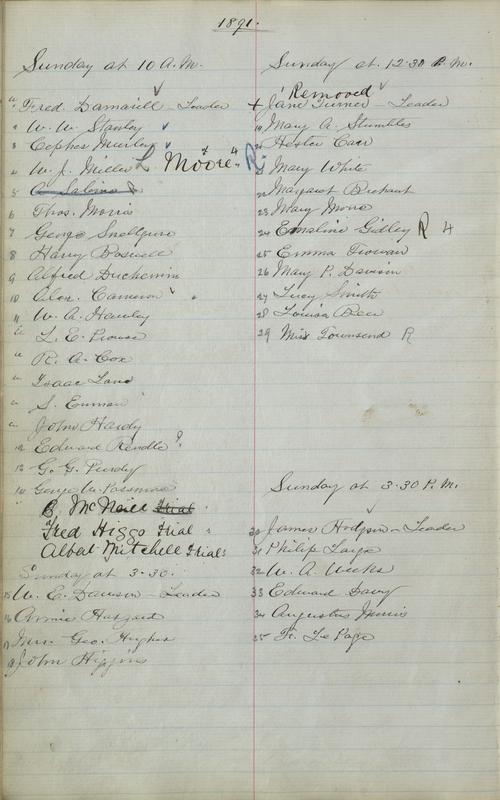 1891.
Sunday at 10 A.M.
Fred Damarell - Leader
W. W. Stanley
Cephas
W. J. Miller L Moore " R
5 A
6 Thos. Morris
7 George Snellgrove
8 Harry Boswell
9 Alfred Duchemin
10 Alex. Cameron
11 W. A. Hawley
L. E. Prowse
R. A. Cox
Isaac Lane
S. Enman
John Hardy
12 Edward Rendle ?
13 G. G. Purdy
14 George W. Passmore
B. McNeill Trial
Fred Higgs Trial
Albat Mitchell Trial
Sunday at 3.30.
15 W. C. Dawson - Leader
16 Annie Haszard
17 Mrs. Geo. Hughes
18 John Higgins
Sunday at 12.30 P.M.
Removed
+ Jane Turner - Leader
19 Mary A. Stumbles
20 Hester Carr
21 Mary White
22 Margaret
23 Mary Morris
24 Emaline Gidley R 4
25 Emma Trowan
26 Mary P. Dawson
27 Lucy Smith
28 Louisa Beer
29 Miss Townsend R
Sunday at 3.30 P.M.
30 James Hodgson - Leader
31 Philip Large
32 W. A. Weeks
33 Edward Davy
34 Augustus
35 Fr. Le Page